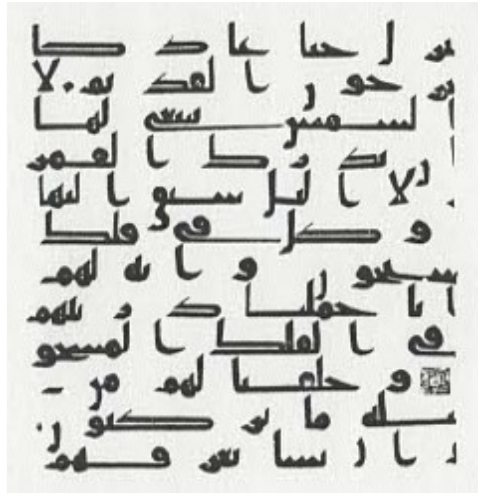 ز ل حتى عاد كا
لعر جون القديم لا
الشمس ينبغي لها
ان تدرك القمر
ولا اليل سابق النها
ر وكل في فلك
يسبحون واية لهم
انا حملنا ذريتهم
في الفلك المشحو
ن وخلقنا لهم من
مثله ما يركبون
وان نشا نغرقهم